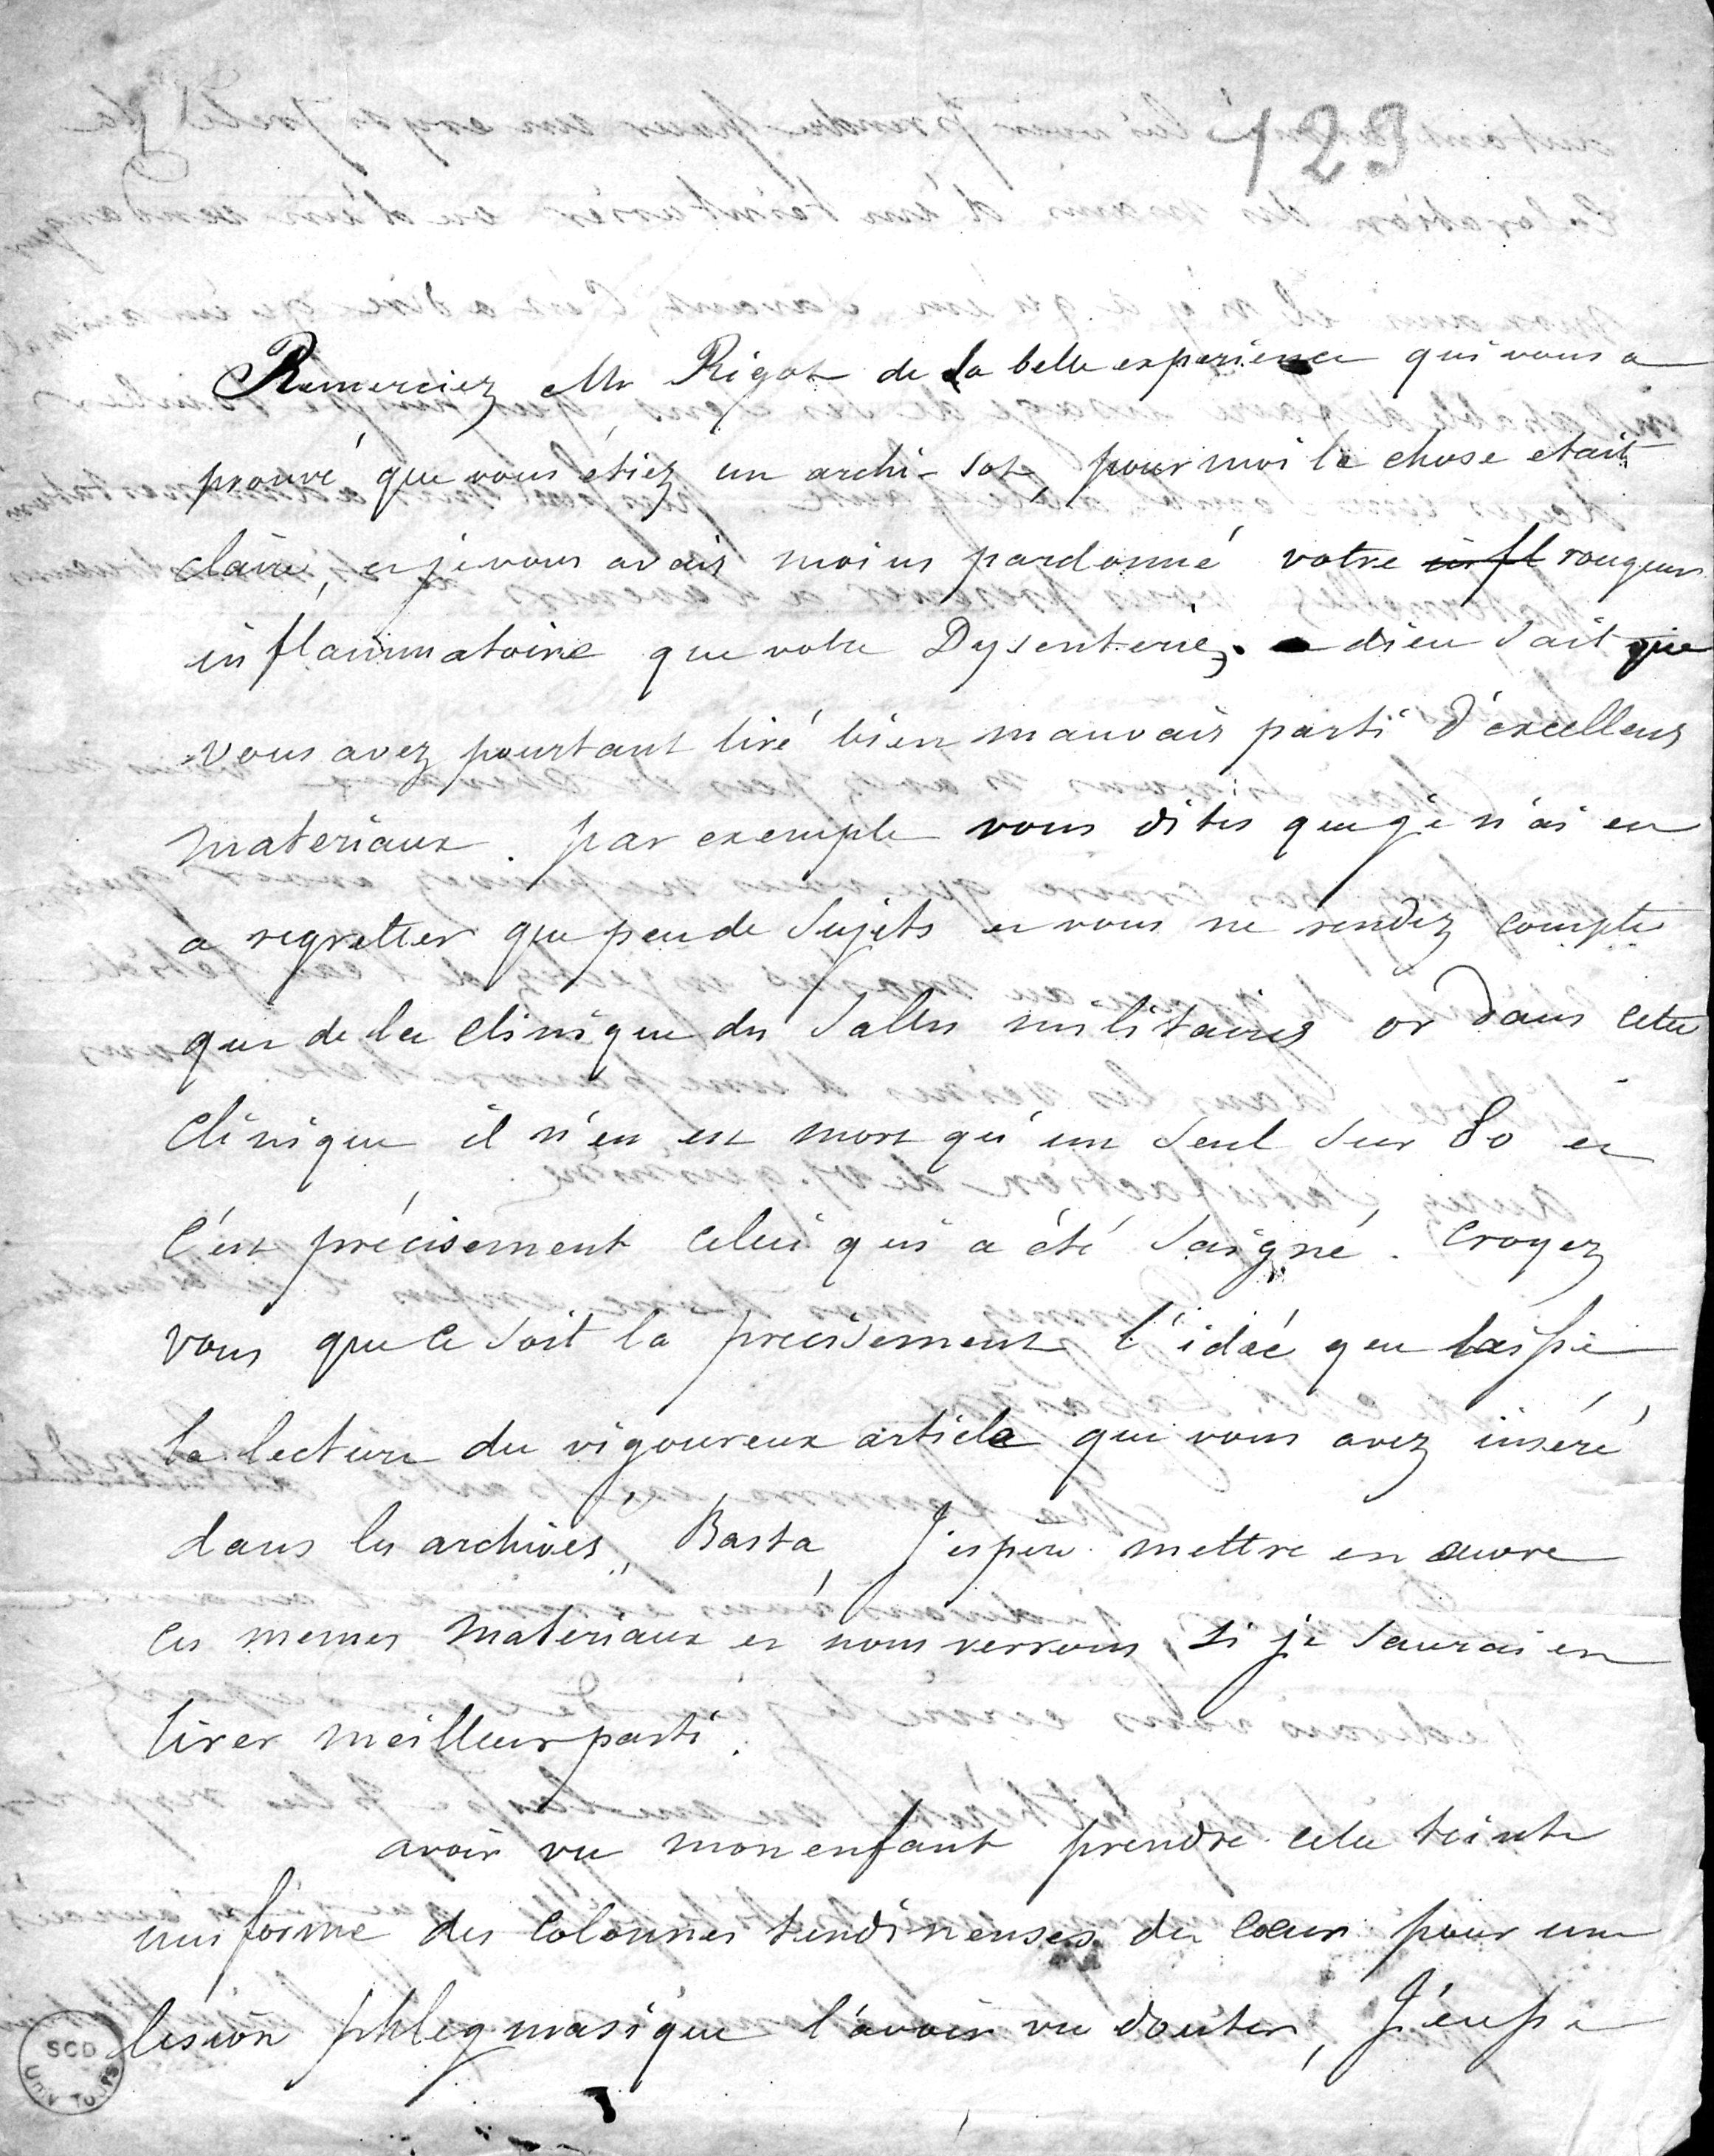 123
Remerciez Mr Rigot de la belle experience qui vous a
prouvé que vous étiez un archi-sot, pour moi la chose etait
claire, et je vous avais moins pardonné votre infl rougeur
inflammatoire que votre Dysenterie. dieu sait que
vous avez pourtant tiré bien mauvais parti d'excellens
materiaux. par exemple vous dites que je n'ai eu
a regretter que peu de sujets et vous ne rendez compte
que de la clinique des salles militaires or dans cette
clinique il n'en est mort qu'un seul sur 80 et
c'est précisement celui qui a été saigné. Croyez
vous que ce soit la precisement l'idée que laisse
la lecture du vigoureux article que vous avez inséré
dans les archives,, Basta, J'espère mettre en œuvre
ces memes materiaux et nous verrons si je saurai en
tirer meilleur parti.
avoir vu mon enfant prendre cette teinte
uniforme des colonnes tendineuses du cœur pour une
lesion phlegmasique l'avoir vu douter, J'eusse
SCD
Univ Tours